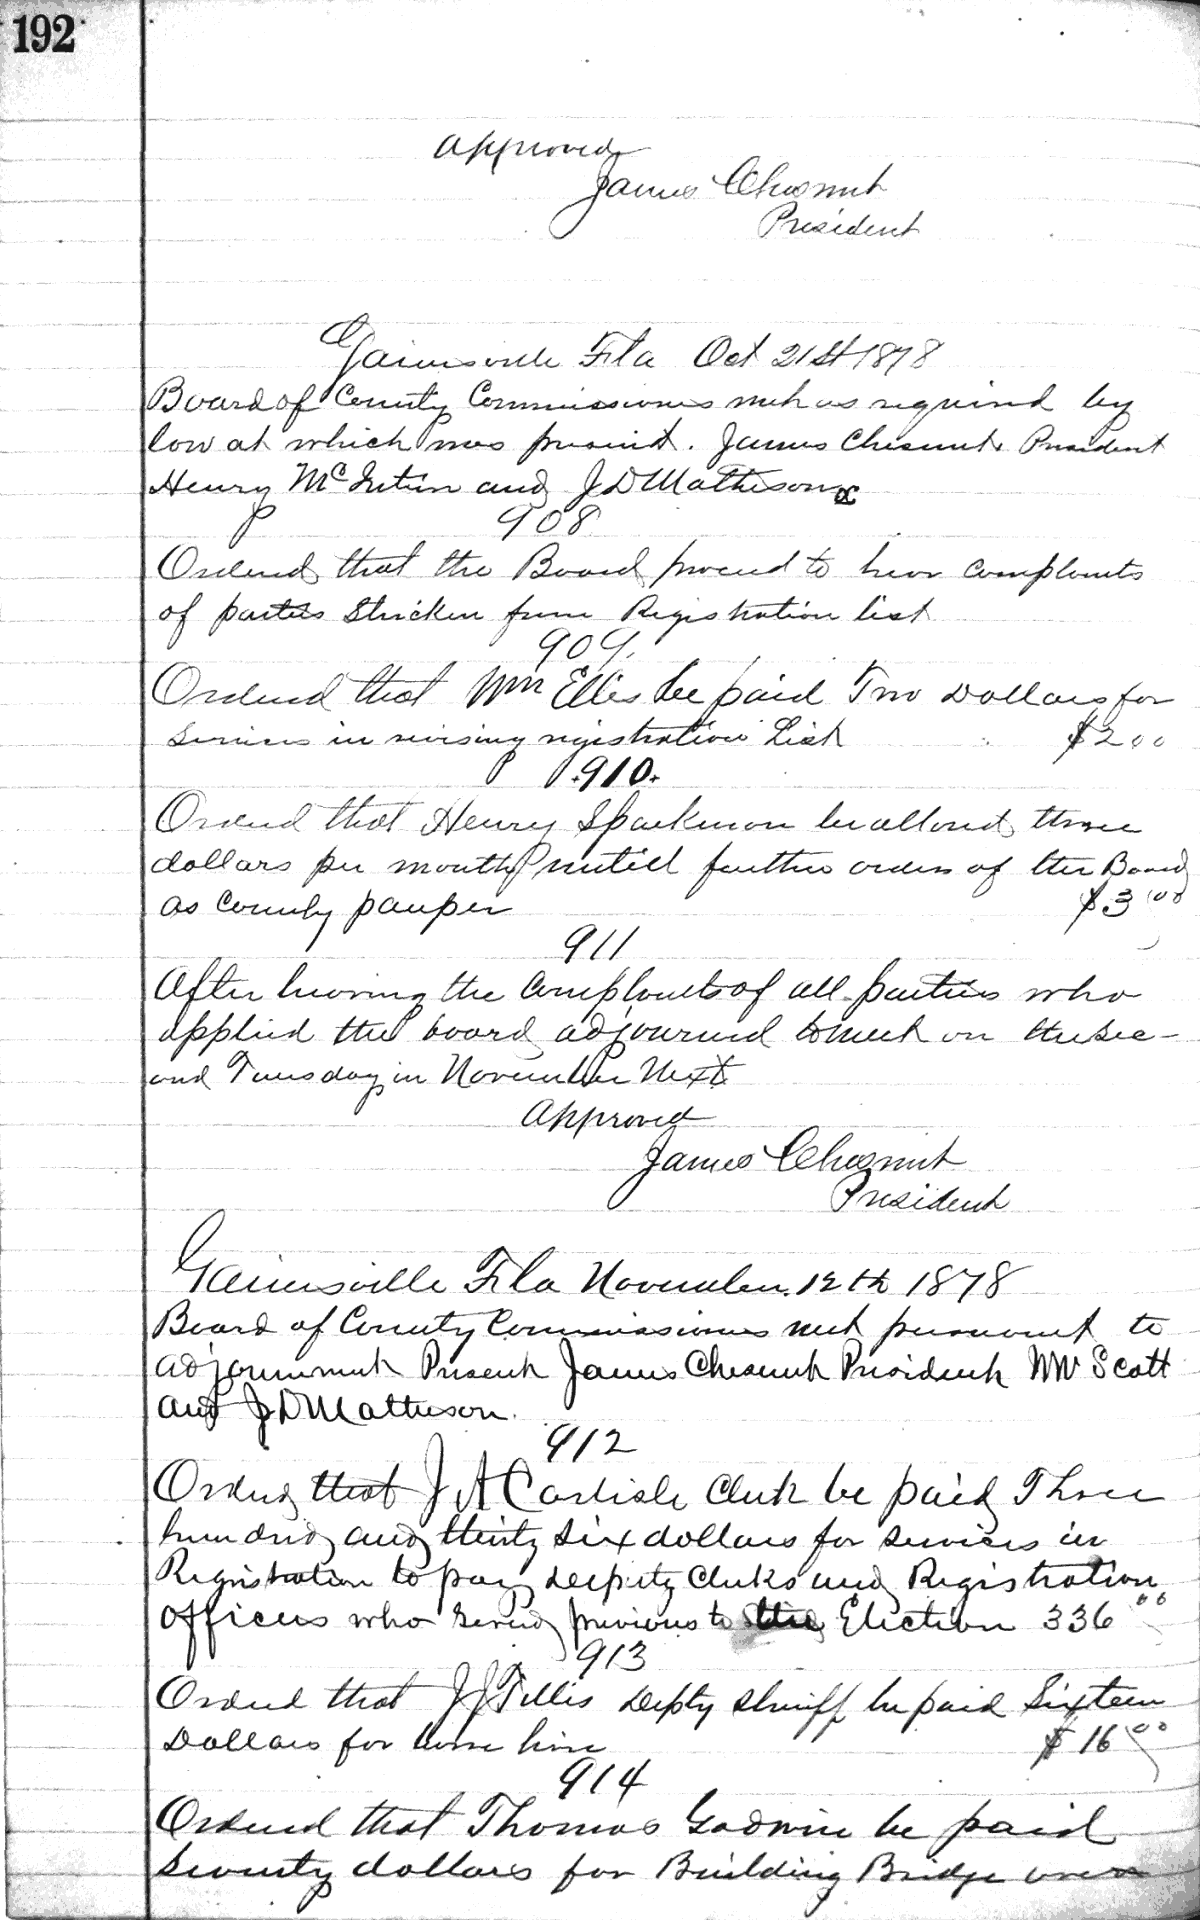 192
Approved
James Chesnut
President
Gainesville Fla Oct 21st 1878
Board of County Commissioners met as required by
law at which was present. James Chesnut President
Henry McIntire and J D Matheson
908
Ordered that the Board proceed to hear complaints
of parties Stricken from Registration list
909.
Ordered that Wm Ellis be paid Two Dollars for
services in revising registration List $2 00
.910.
Ordered that Henry Sparkman be allowed three
dollars per month until further orders of the Board
as County pauper $3 00
911
After hearing the complaints of all parties who
applied the board adjourned to meet on the Sec-
ond Tuesday in November Next
Approved
James Chesnut
President
Gainesville Fla November. 12th 1878
Board of County Commissioners met pursuant to
adjournment Present James Chesnut President WW Scott
and J D Matheson.
912
Ordered that J A Carlisle Clerk be paid Three
hundred and thirty six dollars for services in
Registration to pay deputy Clerks and Registration
officers who served previous to the Election 336 00
913
Ordered that J J Tillis Depty sheriff be paid Sixteen
Dollars for horse hire $16 00
914
Ordered that Thomas Godwin be paid
Seventy dollars for Building Bridge over